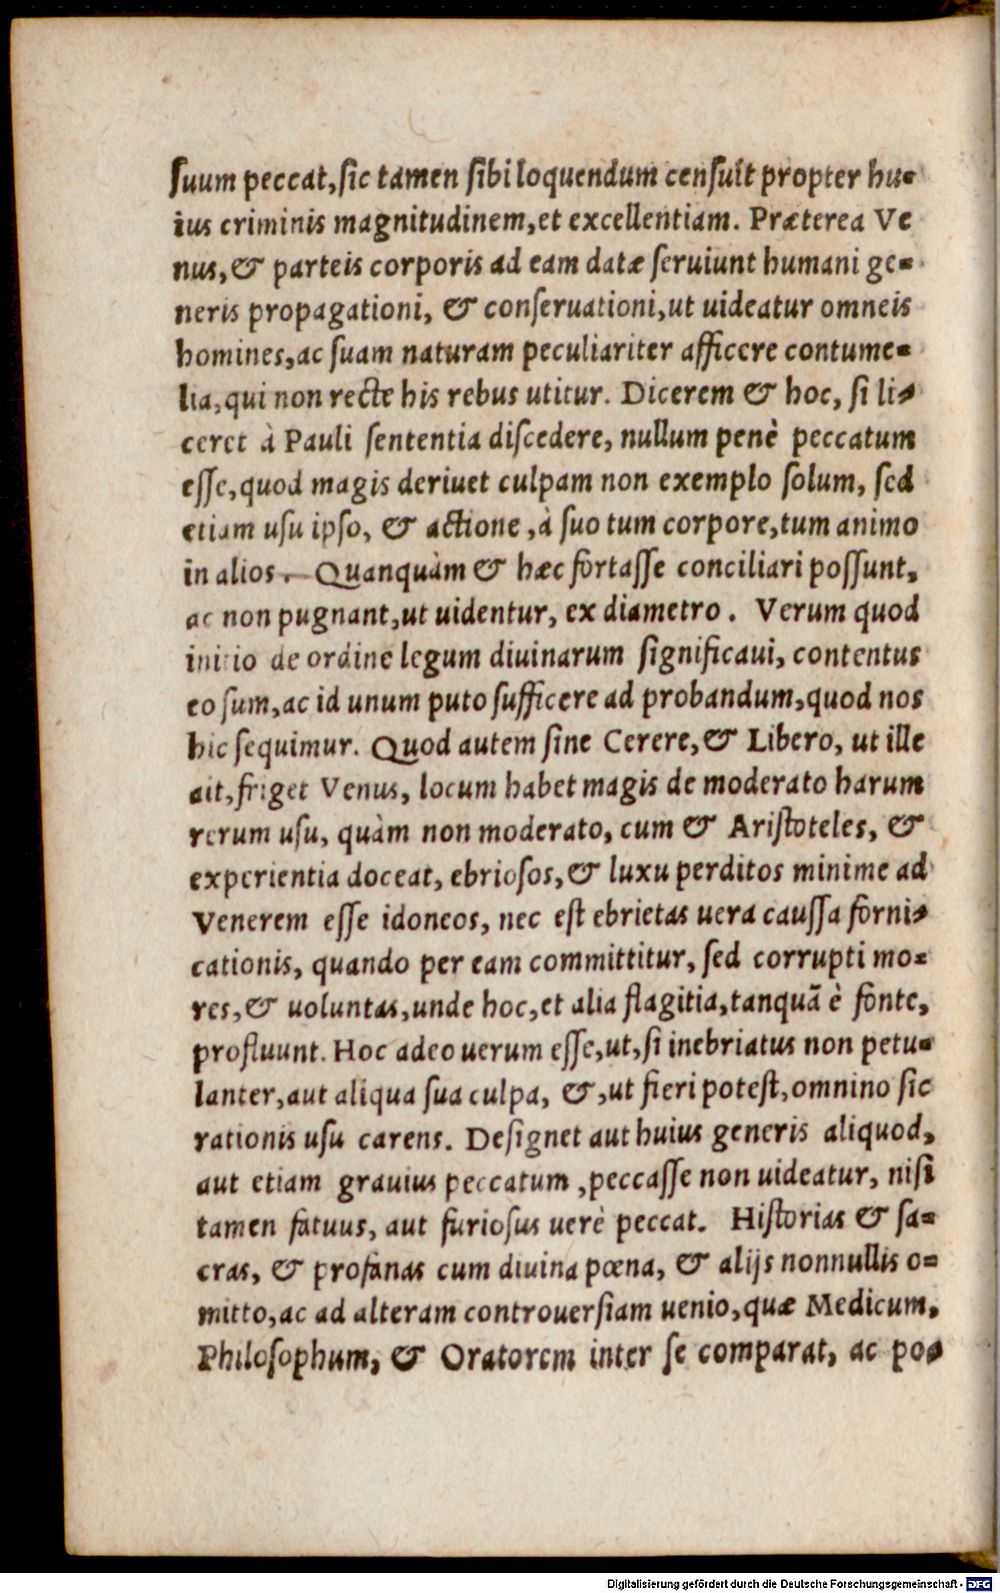 ſuum peccat, ſic tamen ſibi loquendum cenſuit propter hu-
ius criminis magnitudinem, et excellentiam. Præterea Ve
nus, & parteis corporis ad eam datæ ſeruiunt humani ge-
neris propagationi, & conſeruationi, ut uideatur omneis
homines, ac ſuam naturam peculiariter afficere contume-
lia, qui non recte his rebus utitur. Dicerem & hoc, ſi li-
ceret à Pauli ſententia diſcedere, nullum penè peccatum
eſſe, quod magis deriuet culpam non exemplo ſolum, ſed
etiam uſu ipſo, & actione, à ſuo tum corpore, tum animo
in alios. Quanquàm & hæc fortaſſe conciliari poſſunt,
ac non pugnant, ut uidentur, ex diametro. Verum quod
initio de ordine legum diuinarum ſignificaui, contentus
eo ſum, ac id unum puto ſufficere ad probandum, quod nos
hic ſequimur. Quod autem ſine Cerere, & Libero, ut ille
ait, friget Venus, locum habet magis de moderato harum
rerum uſu, quàm non moderato, cum & Ariſtoteles, &
experientia doceat, ebrioſos, & luxu perditos minime ad
Venerem eſſe idoneos, nec eſt ebrietas uera cauſſa forni-
cationis, quando per eam committitur, ſed corrupti mo-
res, & uoluntas, unde hoc, et alia flagitia, tanquã è fonte,
profluunt. Hoc adeo uerum eſſe, ut, ſi inebriatus non petu-
lanter, aut aliqua ſua culpa, &, ut fieri poteſt, omnino ſic
rationis uſu carens. Deſignet aut huius generis aliquod,
aut etiam grauius peccatum, peccaſſe non uideatur, niſi
tamen fatuus, aut furioſus uerè peccat. Hiſtorias & ſa-
cras, & profanas cum diuina pœna, & alijs nonnullis o-
mitto, ac ad alteram controuerſiam uenio, quæ Medicum,
Philoſophum, & Oratorem inter ſe comparat, ac po-
Digitalisierung gefördert durch die Deutsche Forschungsgemeinschaft - DFG